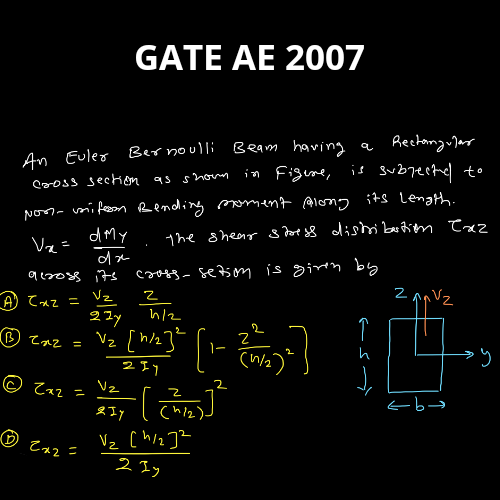 GATE AE 2007
An Euler Bernoulli Beam having a Rectangular
cross section as shown in Figure, is subjected to
non-uniform Bending moment along its length.
Vx = dMy/dx . The shear stress distribution τxz
across its cross-section is given by
(A) τxz = Vz/2Iy z/h/2
(B) τxz = Vz [h/2]²/2Iy [1 - z²/(h/2)²]
(C) τxz = Vz/2Iy [z/(h/2)]²
(D) τxz = Vz [h/2]²/2Iy
z Vz
h
y
b